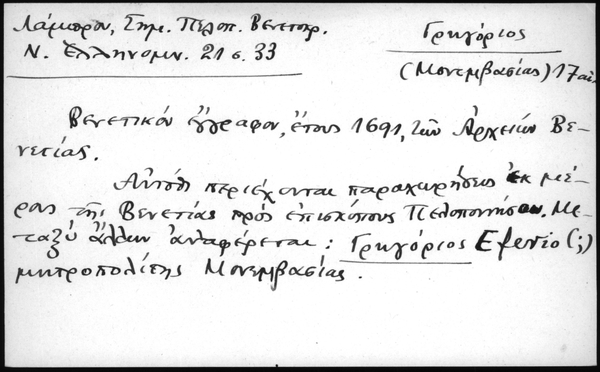 Λάμπρου, Σημ. Πελοπ. Βενετοκρ.
Ν. Ελληνομν. 21 σ. 33
Γρηγόριος
(Μονεμβασίας) 17 αἰ.
Βενετικόν ἔγγραφον, ἔτους 1691, τῶν Ἀρχείων Βε-
νετίας.
Αὐτόθι περιέχονται παραχωρήσεις ἐκ μέ-
ρους τῆς Βενετίας πρός ἐπισκόπους Πελοποννήσου. Με-
ταξύ ἄλλων ἀναφέρεται: Γρηγόριος Efentio (;)
μητροπολίτης Μονεμβασίας.